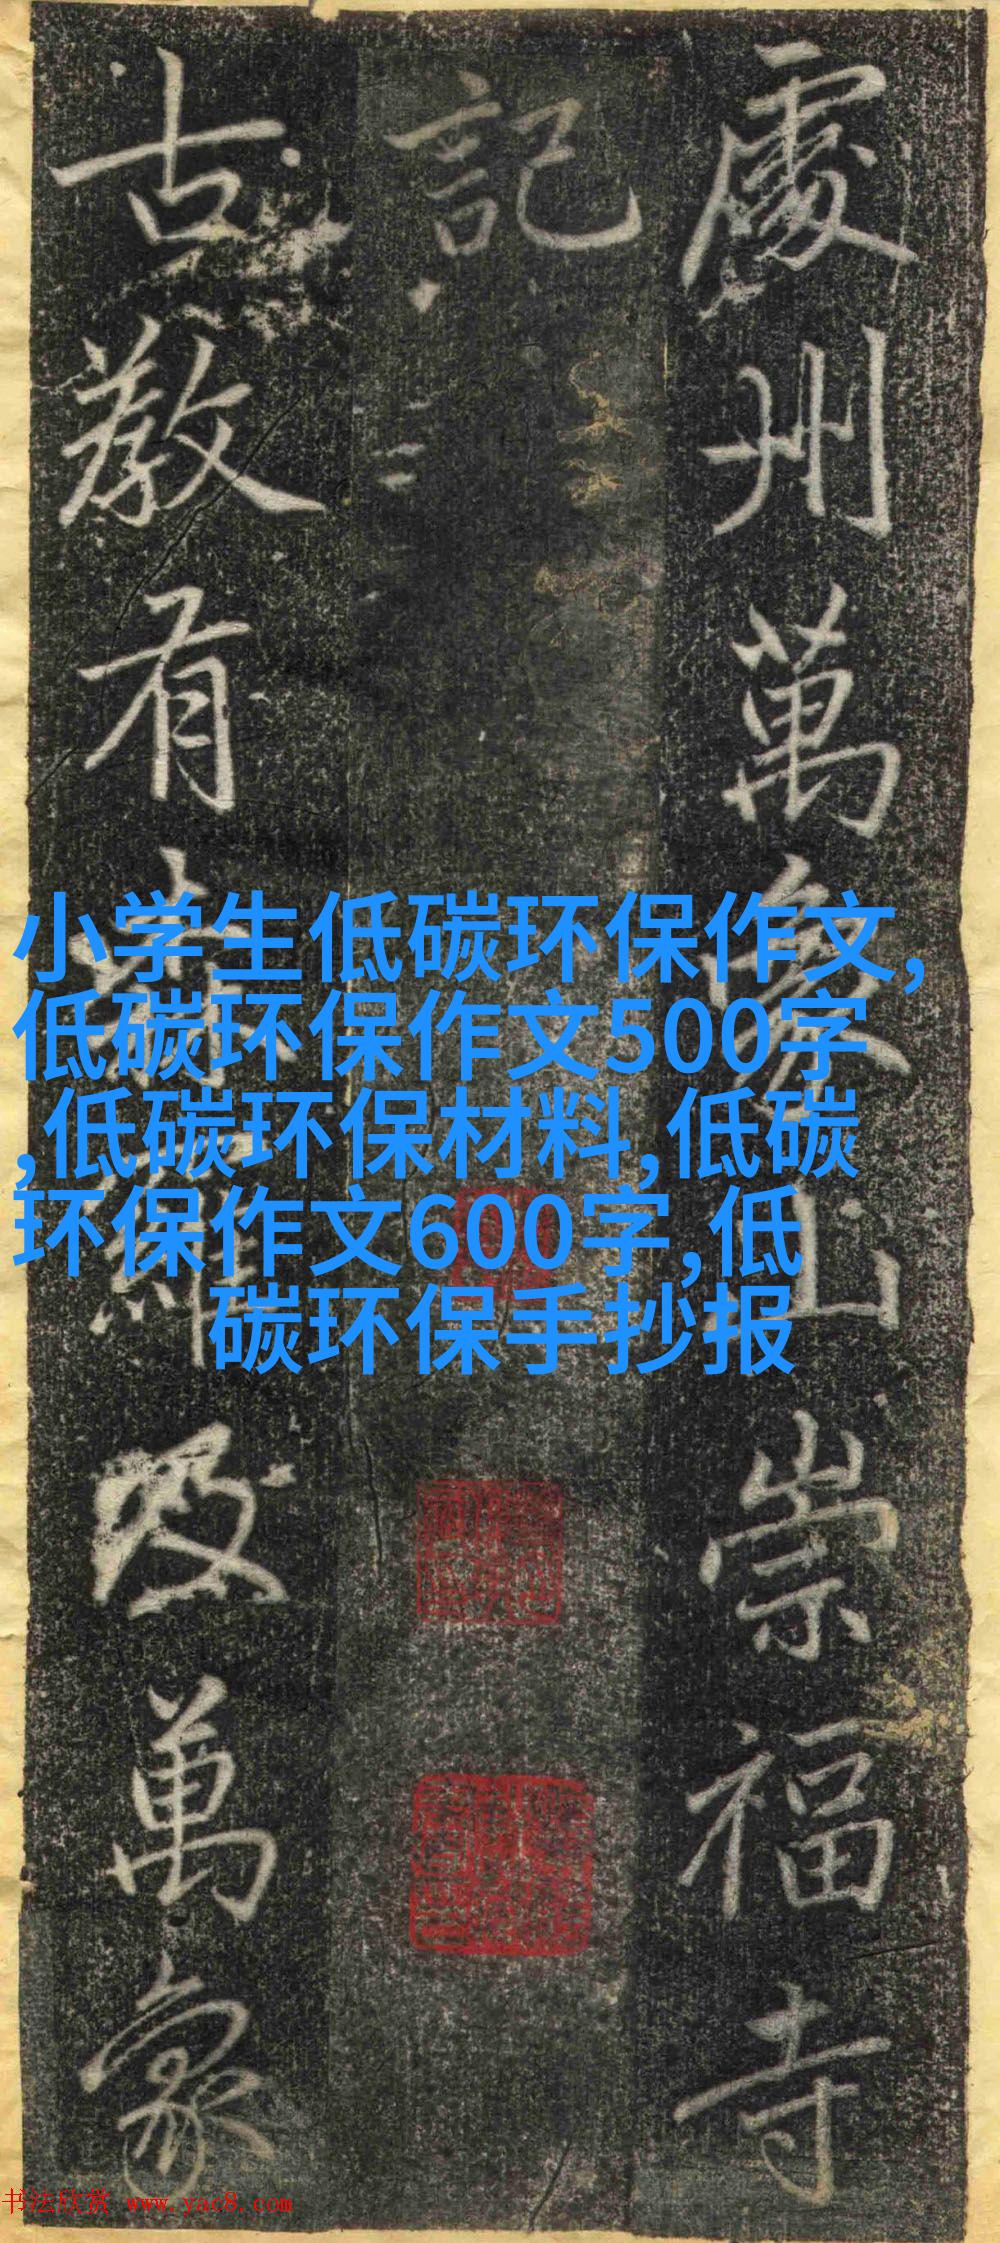 處州萬象山崇福寺
記
古教有森羅及萬象
小学生低碳环保作文,
低碳环保作文500字
,低碳环保材料,低碳
环保作文600字,低
碳环保手抄报
书法欣赏 www.yac8.com